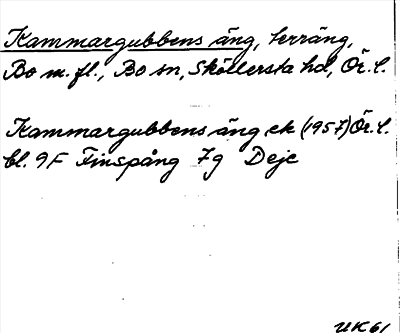 Kammargubbens äng, terräng,
Bo m. fl., Bo sn, Sköllersta hd, Ör. l.
Kammargubbens äng ek (1957) Ör. l.
bl. 9F Finspång 7g Dejc
UK61